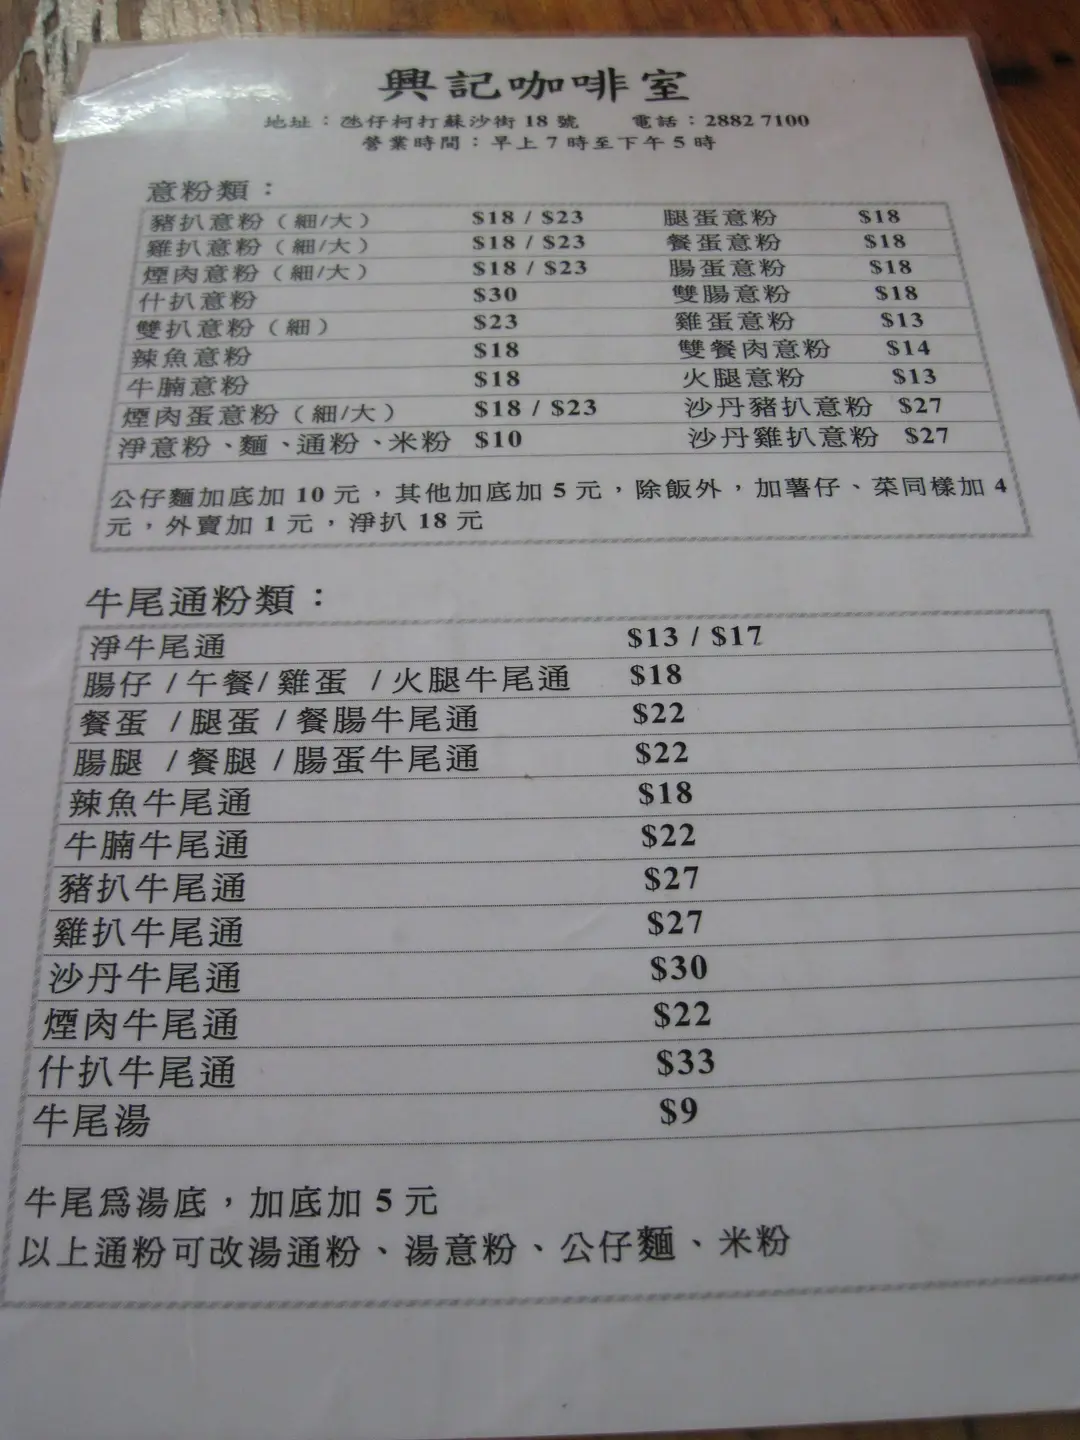 興記咖啡室
地址：氹仔柯打蘇沙街 18 號　電話：2882 7100
營業時間：早上 7 時至下午 5 時
意粉類：
豬扒意粉（細/大） $18 / $23 腿蛋意粉 $18
雞扒意粉（細/大） $18 / $23 餐蛋意粉 $18
煙肉意粉（細/大） $18 / $23 腸蛋意粉 $18
什扒意粉 $30 雙腸意粉 $18
雙扒意粉（細） $23 雞蛋意粉 $13
辣魚意粉 $18 雙餐肉意粉 $14
牛腩意粉 $18 火腿意粉 $13
煙肉蛋意粉（細/大） $18 / $23 沙丹豬扒意粉 $27
淨意粉、麵、通粉、米粉 $10 沙丹雞扒意粉 $27
公仔麵加底加 10 元，其他加底加 5 元，除飯外，加薯仔、菜同樣加 4
元，外賣加 1 元，淨扒 18 元
牛尾通粉類：
淨牛尾通 $13 / $17
腸仔 /午餐/ 雞蛋 /火腿牛尾通 $18
餐蛋 /腿蛋 / 餐腸牛尾通 $22
腸腿 /餐腿 /腸蛋牛尾通 $22
辣魚牛尾通 $18
牛腩牛尾通 $22
豬扒牛尾通 $27
雞扒牛尾通 $27
沙丹牛尾通 $30
煙肉牛尾通 $22
什扒牛尾通 $33
牛尾湯 $9
牛尾爲湯底，加底加 5 元
以上通粉可改湯通粉、湯意粉、公仔麵、米粉